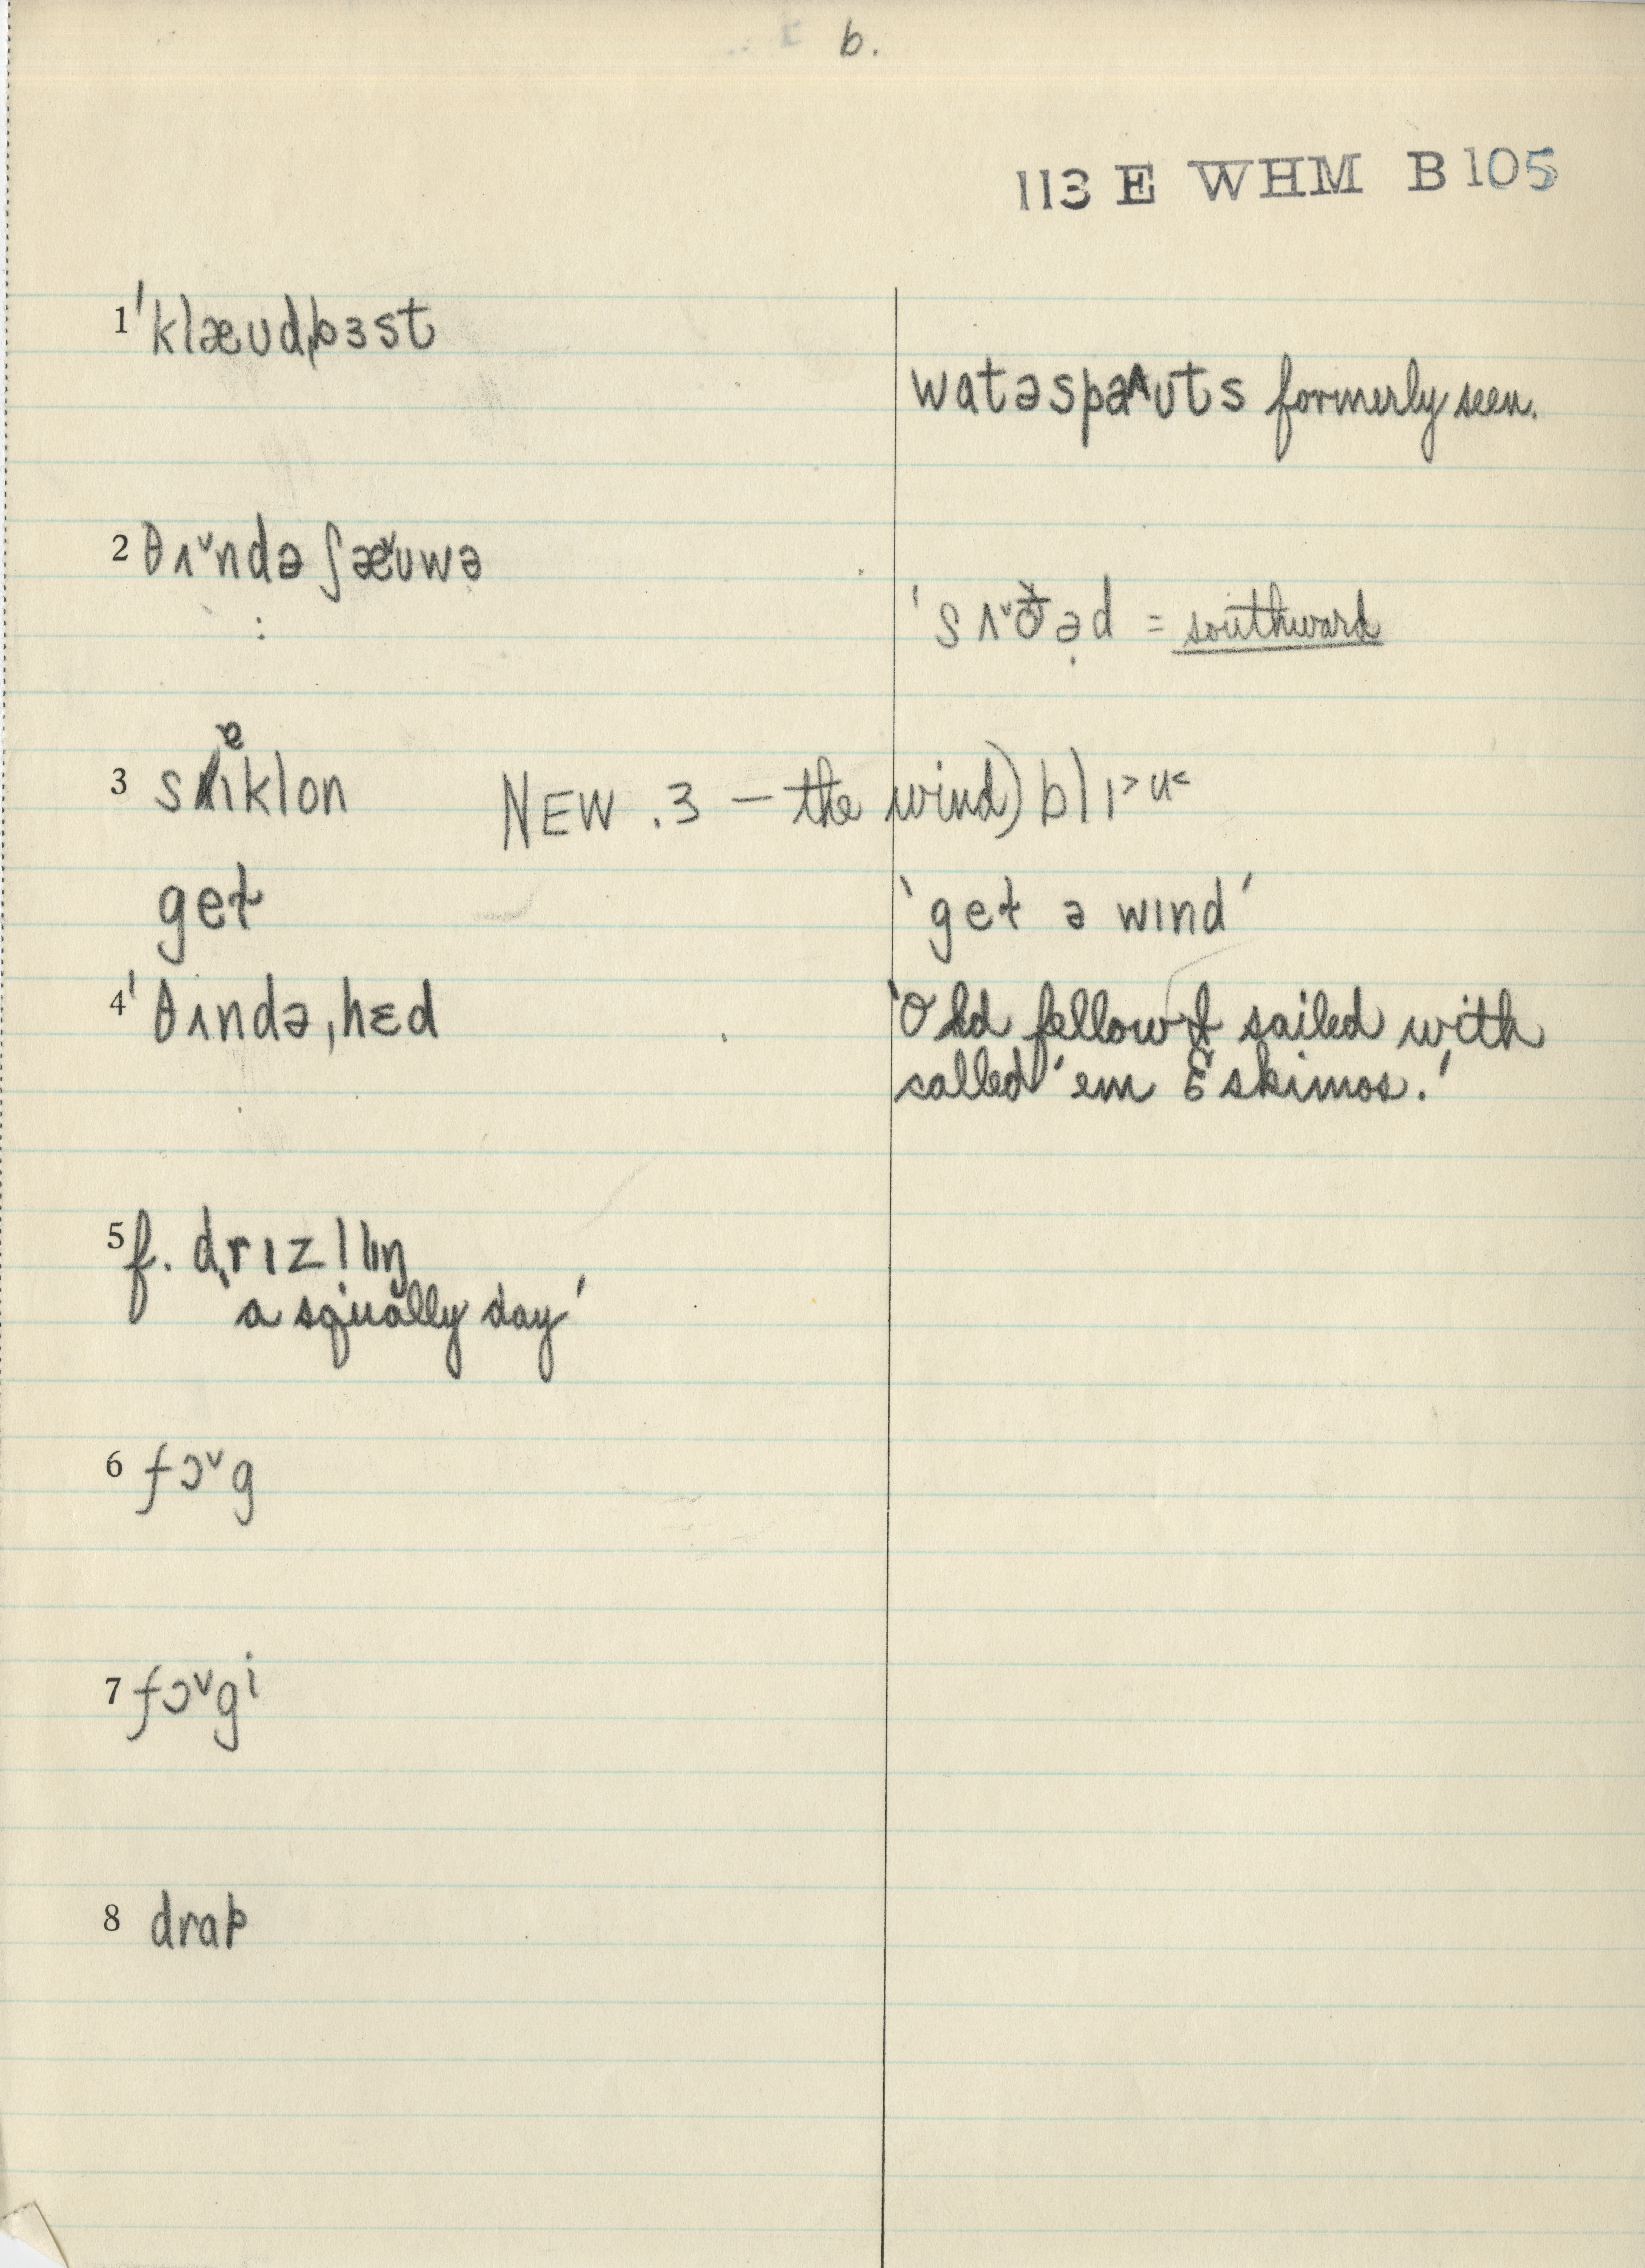 b.
113 E WHM B 105
1 ˈklæʊdˌbɜst
watəspaʌʊts formerly seen.
2 θʌ˅ndə ʃæ˅ʊwə
ˈsʌ˅ðə̣d = southward
3 sɐiklon NEW .3 — the wind) blɪ˃ʉ˂
get
'get ə wɪnd'
4 ˈθʌndəˌhɛd
'Old fellow I sailed with
called 'em Eskimos.'
5 f. drɪzl̩ɪŋ
'a squally day'
6 fɔ˅g
7 fɔ˅gi
8 drap